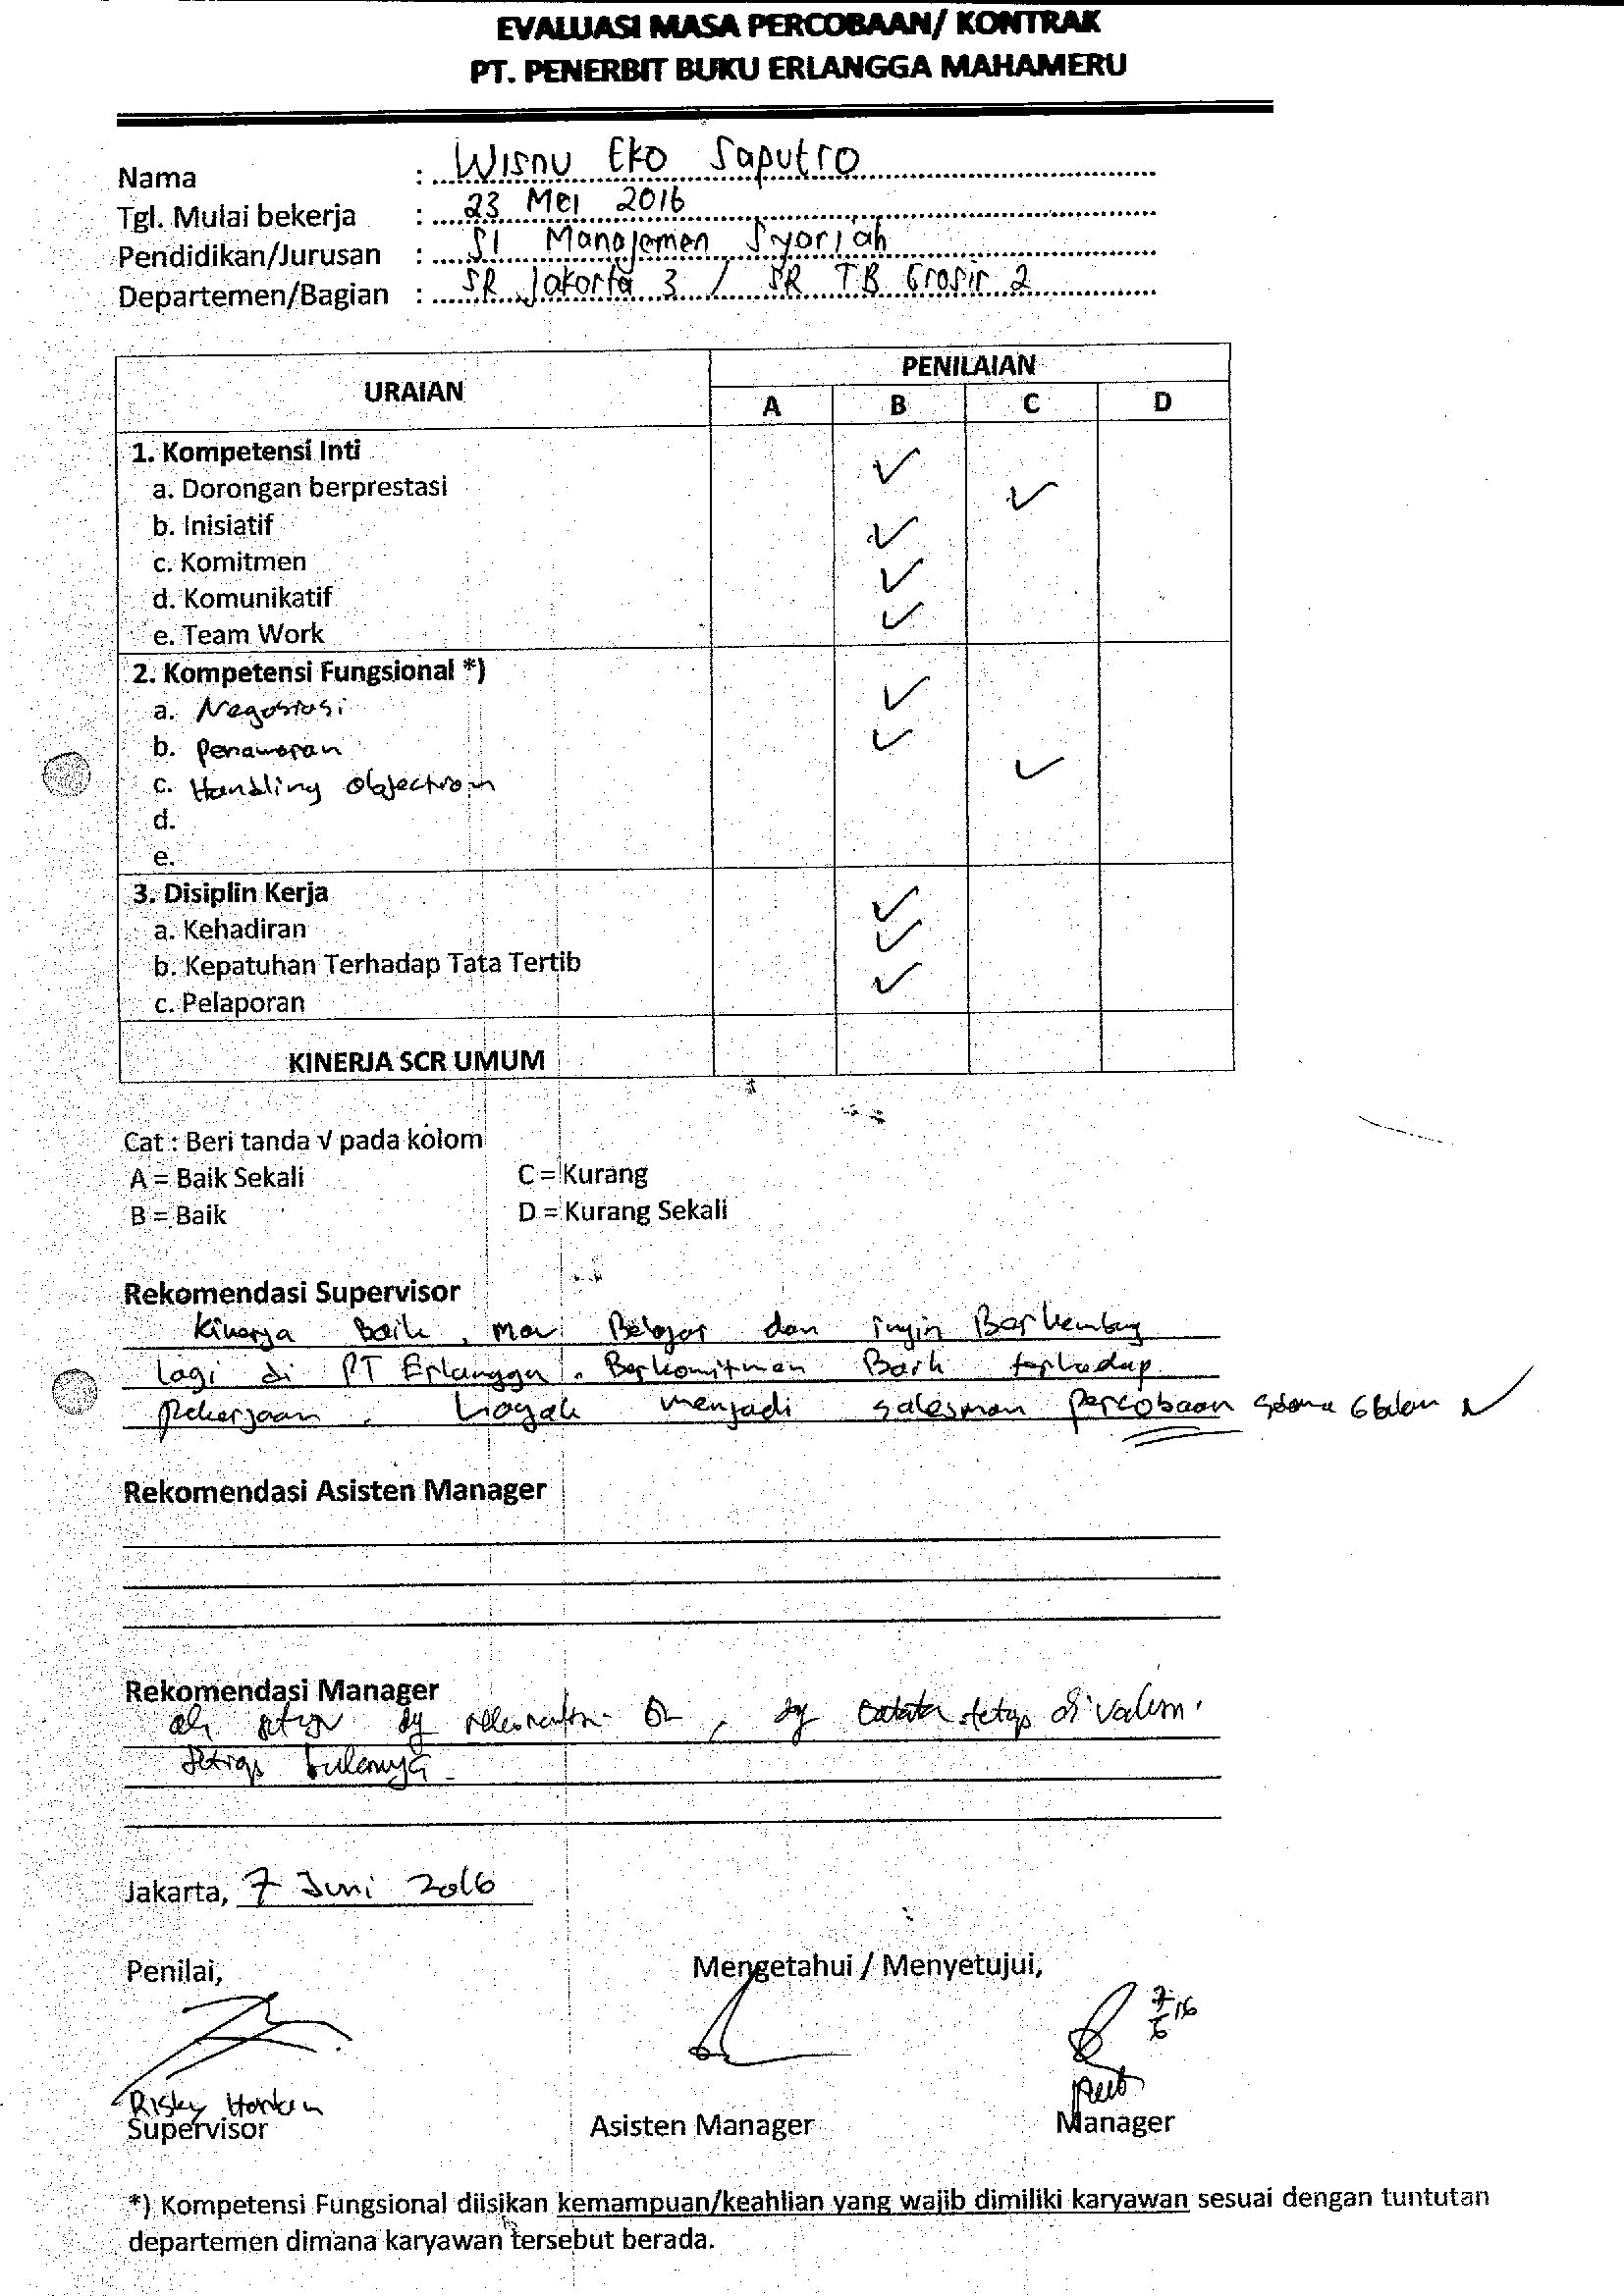 EVALUASI MASA PERCOBAAN/ KONTRAK
PT. PENERBIT BUKU ERLANGGA MAHAMERU
Nama : Wisnu Eko Saputro
Tgl. Mulai bekerja : 23 Mei 2016
Pendidikan/Jurusan : S1 Manajemen Syariah
Departemen/Bagian : SR Jakarta 3 / SR TB Grosir 2
URAIAN PENILAIAN
A B C D
1. Kompetensi Inti
a. Dorongan berprestasi ✓
b. Inisiatif ✓
c. Komitmen ✓
d. Komunikatif ✓
e. Team Work ✓
2. Kompetensi Fungsional *)
a. Negosiasi ✓
b. Penawaran ✓
c. Handling objection ✓
d.
e.
3. Disiplin Kerja
a. Kehadiran ✓
b. Kepatuhan Terhadap Tata Tertib ✓
c. Pelaporan ✓
KINERJA SCR UMUM
Cat : Beri tanda √ pada kolom
A = Baik Sekali C = Kurang
B = Baik D = Kurang Sekali
Rekomendasi Supervisor
Kinerja Baik, mau Belajar dan ingin Berkembang
lagi di PT Erlangga. Berkomitmen Baik terhadap
pekerjaan. Layak menjadi salesman percobaan selama 6 bulan
Rekomendasi Asisten Manager
Rekomendasi Manager
dg catatan tetap di
setiap bulannya
Jakarta, 7 Juni 2016
Penilai, Mengetahui / Menyetujui,
7/6 16
Risky
Supervisor Asisten Manager Manager
*) Kompetensi Fungsional diisikan kemampuan/keahlian yang wajib dimiliki karyawan sesuai dengan tuntutan
departemen dimana karyawan tersebut berada.